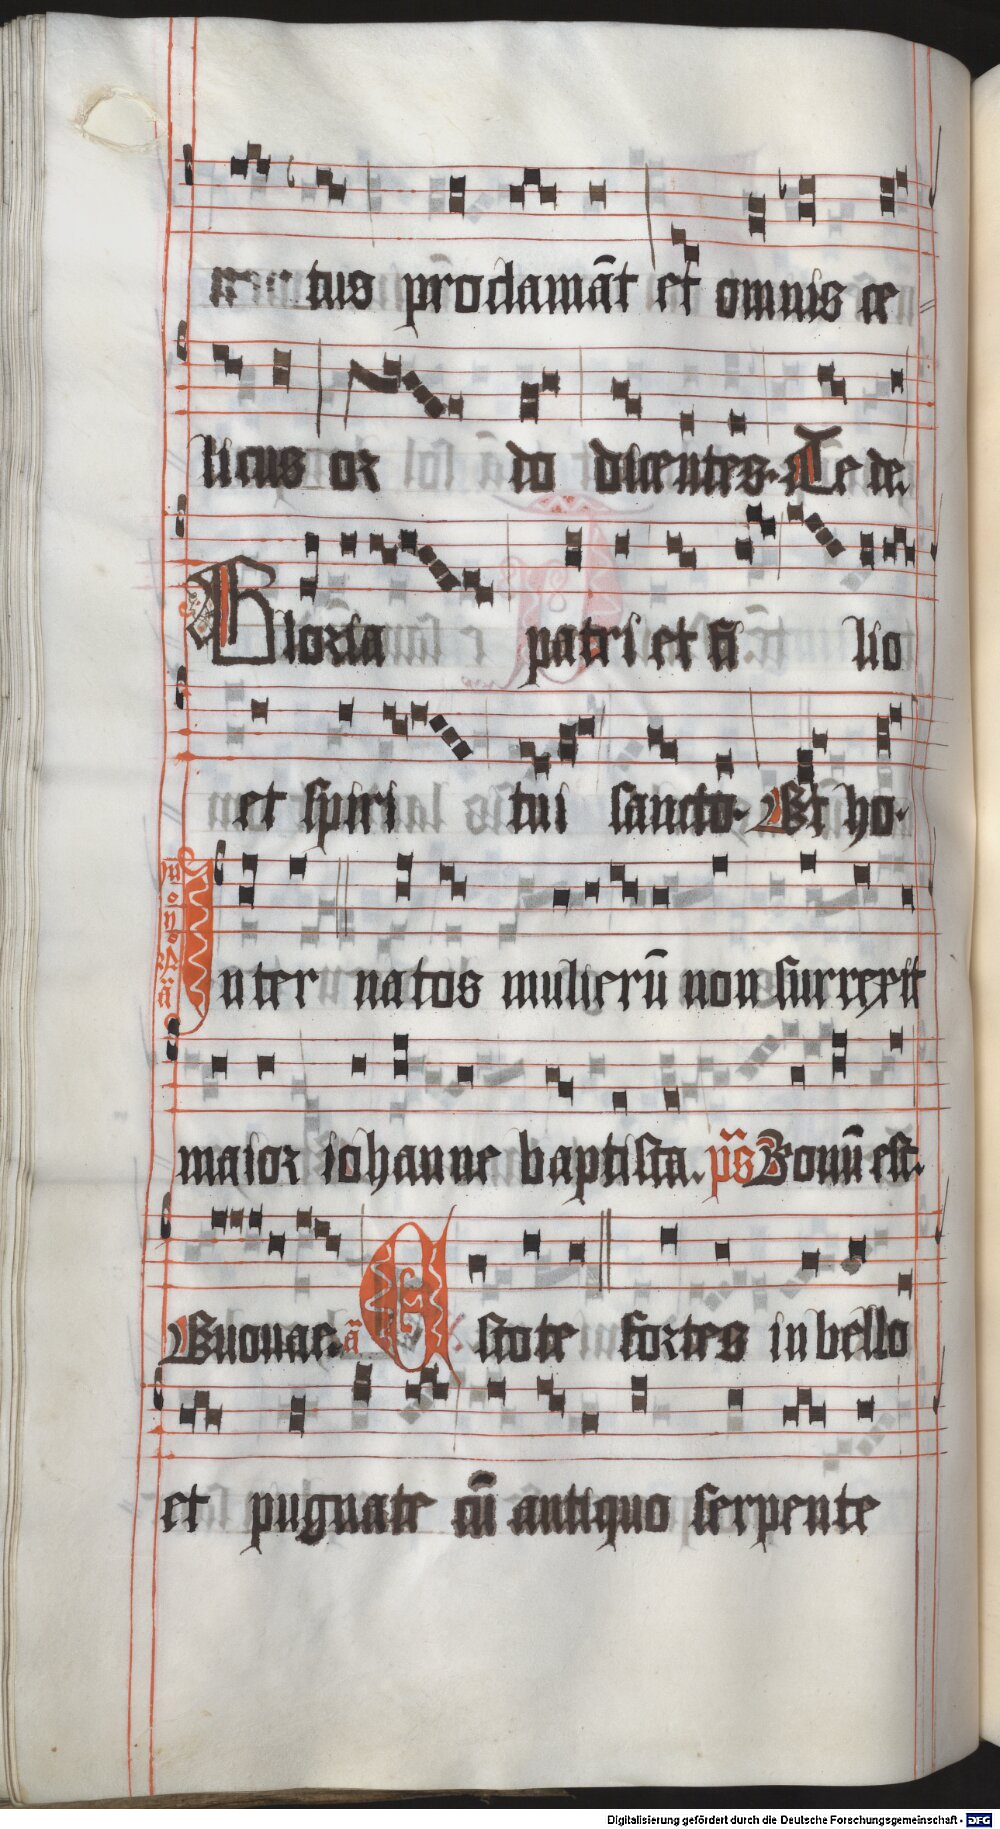 tus proclamāt et omnis ce
licus or do dicentes. Te de.
Gloria patri et fi lio
et spiri tui sancto. Et ho.
Inter natos mulierū non surrexit
maior iohanne baptista. ps Bonū est.
Euouae. ā Estote fortes in bello
et pugnate cū antiquo serpente
Digitalisierung gefördert durch die Deutsche Forschungsgemeinschaft - DFG